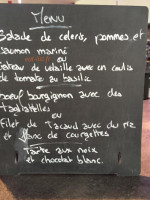 Menu
Salade de celeris, pommes et
saumon mariné
ou
Gateau de volaille avec un coulis
de tomate au basilic
Boeuf bourguignon avec des
tagliatelles
ou
Filet de Tacaud avec du riz
et flanc de courgettes
Tarte aux noix
et chocolat blanc.